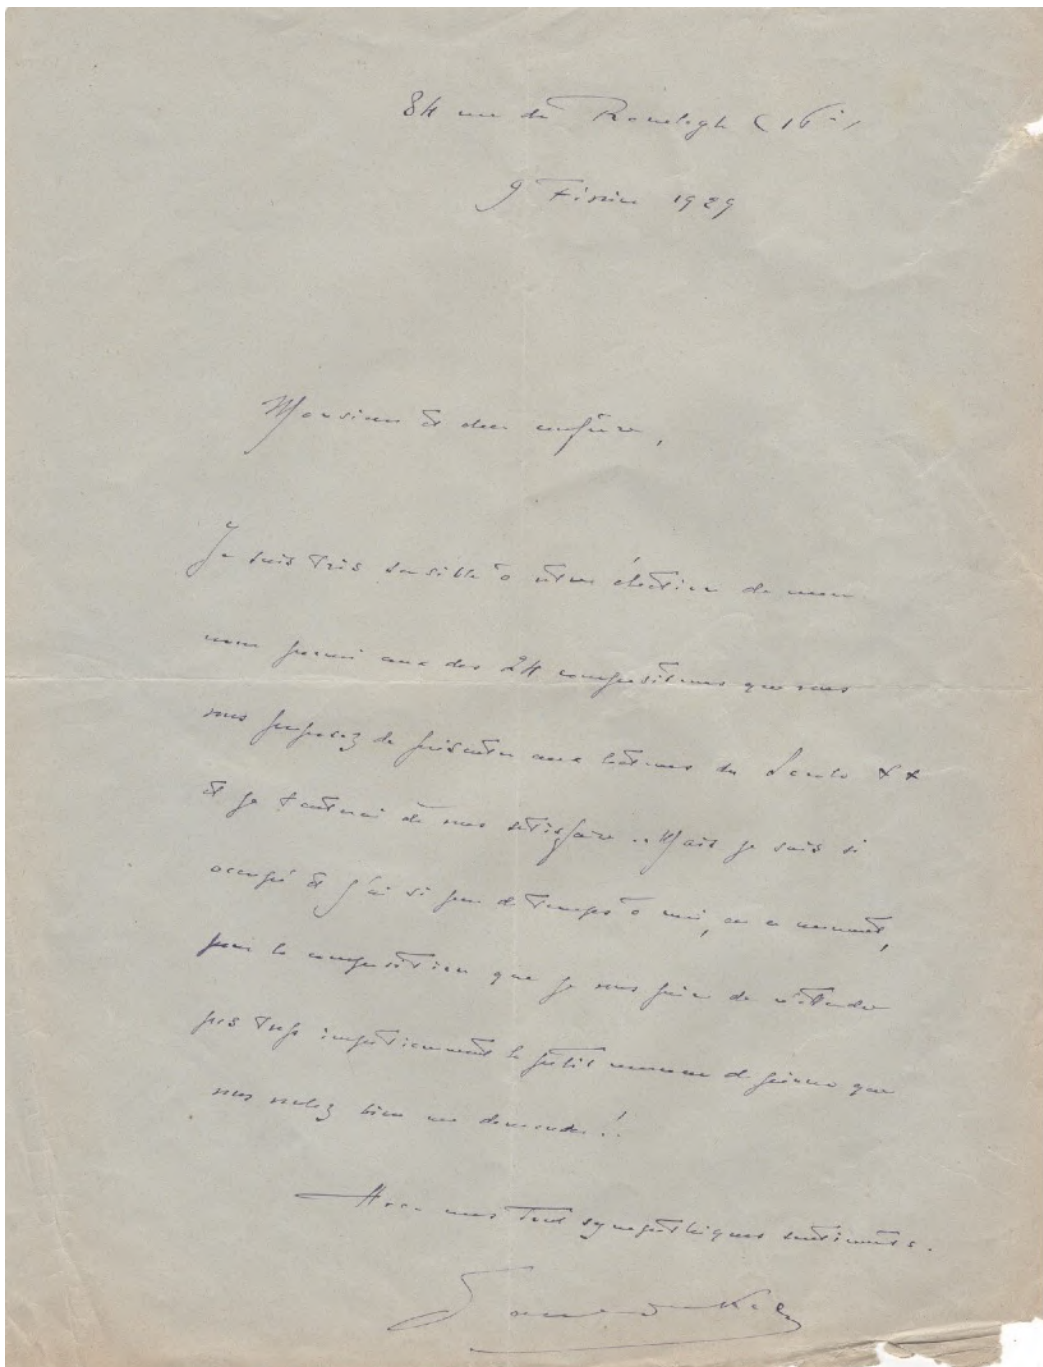 84 rue du Ranelagh (16e)
9 Février 1929
Monsieur et cher confrère,
Je suis très sensible à votre élection de mon
nom parmi ceux des 24 compositeurs que vous
vous proposez de présenter aux lecteurs du
et je tenterai de vous satisfaire .. Mais je suis si
occupé et j'ai si peu de temps à moi, en ce moment,
pour la composition que je vous prie de n'attendre
pas trop impatiemment le petit morceau de piano que
vous voulez bien me demander !.
Avec mes tout sympathiques sentiments.
Paul Dukas